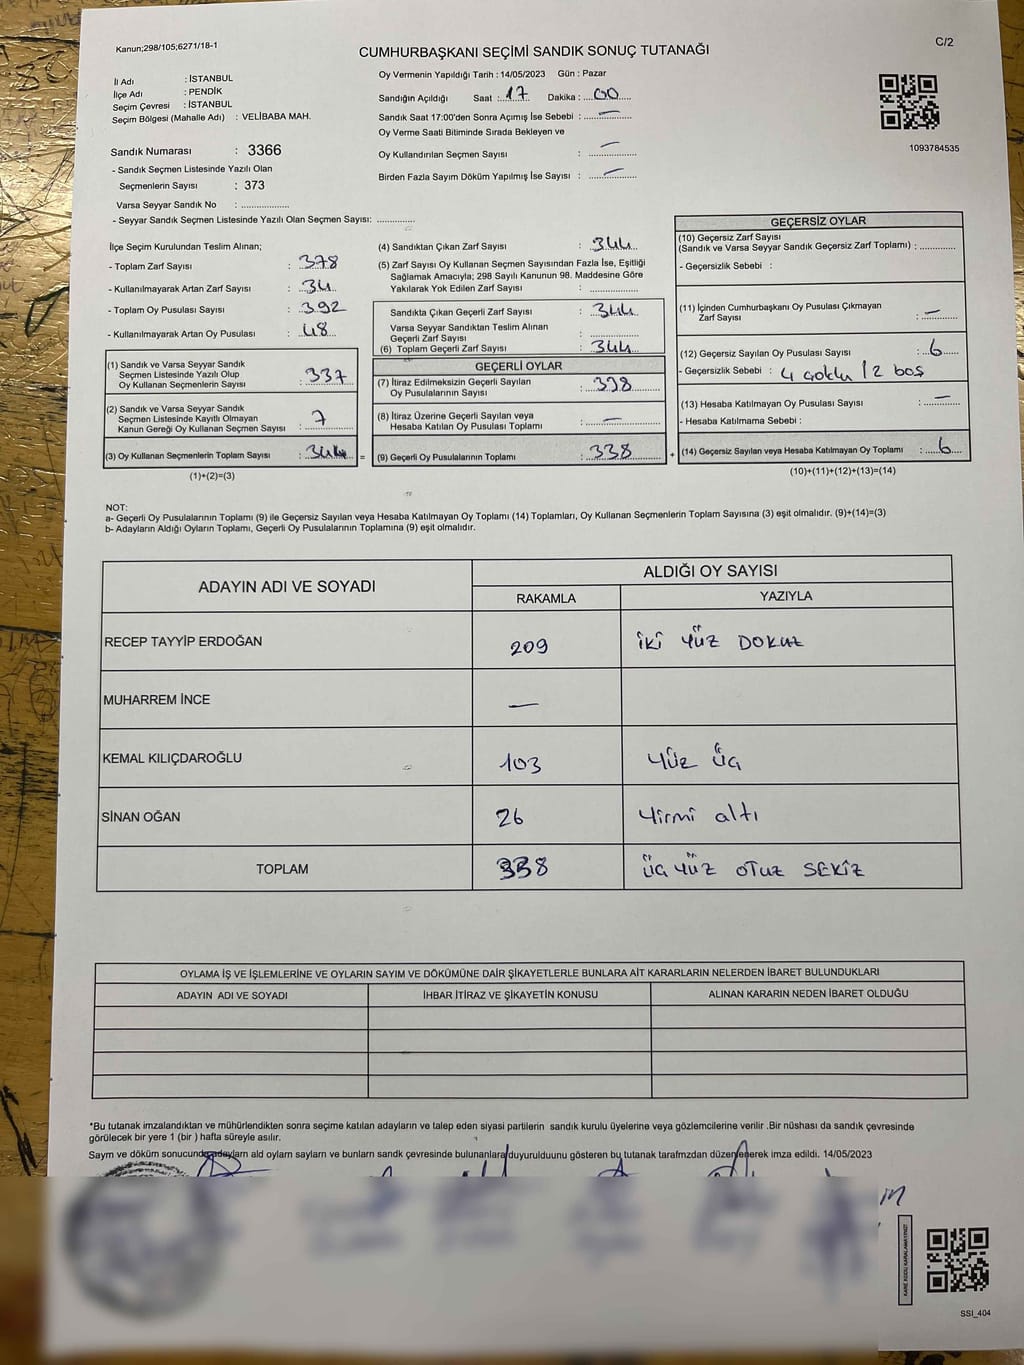 Kanun;298/105;6271/18-1
C/2
CUMHURBAŞKANI SEÇİMİ SANDIK SONUÇ TUTANAĞI
İl Adı : İSTANBUL
İlçe Adı : PENDİK
Seçim Çevresi : İSTANBUL
Seçim Bölgesi (Mahalle Adı) : VELİBABA MAH.
Sandık Numarası : 3366
- Sandık Seçmen Listesinde Yazılı Olan
Seçmenlerin Sayısı : 373
Varsa Seyyar Sandık No : ..................
- Seyyar Sandık Seçmen Listesinde Yazılı Olan Seçmen Sayısı: .............
Oy Vermenin Yapıldığı Tarih : 14/05/2023 Gün : Pazar
Sandığın Açıldığı Saat : 17 Dakika : 00
Sandık Saat 17:00'den Sonra Açımış İse Sebebi : —
Oy Verme Saati Bitiminde Sırada Bekleyen ve
Oy Kullandırılan Seçmen Sayısı : —
Birden Fazla Sayım Döküm Yapılmış İse Sayısı : —
1093784535
İlçe Seçim Kurulundan Teslim Alınan;
- Toplam Zarf Sayısı : 378
- Kullanılmayarak Artan Zarf Sayısı : 34
- Toplam Oy Pusulası Sayısı : 392
- Kullanılmayarak Artan Oy Pusulası : 48
(1) Sandık ve Varsa Seyyar Sandık
Seçmen Listesinde Yazılı Olup
Oy Kullanan Seçmenlerin Sayısı : 337
(2) Sandık ve Varsa Seyyar Sandık
Seçmen Listesinde Kayıtlı Olmayan
Kanun Gereği Oy Kullanan Seçmen Sayısı : 7
(3) Oy Kullanan Seçmenlerin Toplam Sayısı : 344 =
(1)+(2)=(3)
(4) Sandıktan Çıkan Zarf Sayısı : 344
(5) Zarf Sayısı Oy Kullanan Seçmen Sayısından Fazla İse, Eşitliği
Sağlamak Amacıyla; 298 Sayılı Kanunun 98. Maddesine Göre
Yakılarak Yok Edilen Zarf Sayısı : ..................
Sandıkta Çıkan Geçerli Zarf Sayısı : 344
Varsa Seyyar Sandıktan Teslim Alınan
Geçerli Zarf Sayısı : ..................
(6) Toplam Geçerli Zarf Sayısı : 344
GEÇERLİ OYLAR
(7) İtiraz Edilmeksizin Geçerli Sayılan
Oy Pusulalarının Sayısı : 338
(8) İtiraz Üzerine Geçerli Sayılan veya
Hesaba Katılan Oy Pusulası Toplamı : —
(9) Geçerli Oy Pusulalarının Toplamı : 338 +
GEÇERSİZ OYLAR
(10) Geçersiz Zarf Sayısı
(Sandık ve Varsa Seyyar Sandık Geçersiz Zarf Toplamı) : ............
- Geçersizlik Sebebi :
(11) İçinden Cumhurbaşkanı Oy Pusulası Çıkmayan
Zarf Sayısı : —
(12) Geçersiz Sayılan Oy Pusulası Sayısı : 6
- Geçersizlik Sebebi : 4 çoklu / 2 boş
(13) Hesaba Katılmayan Oy Pusulası Sayısı : —
- Hesaba Katılmama Sebebi :
(14) Geçersiz Sayılan veya Hesaba Katılmayan Oy Toplamı : 6
(10)+(11)+(12)+(13)=(14)
NOT:
a- Geçerli Oy Pusulalarının Toplamı (9) ile Geçersiz Sayılan veya Hesaba Katılmayan Oy Toplamı (14) Toplamları, Oy Kullanan Seçmenlerin Toplam Sayısına (3) eşit olmalıdır. (9)+(14)=(3)
b- Adayların Aldığı Oyların Toplamı, Geçerli Oy Pusulalarının Toplamına (9) eşit olmalıdır.
ADAYIN ADI VE SOYADI
ALDIĞI OY SAYISI
RAKAMLA YAZIYLA
RECEP TAYYİP ERDOĞAN 209 iki yüz DOKUZ
MUHARREM İNCE —
KEMAL KILIÇDAROĞLU 103 Yüz üç
SİNAN OĞAN 26 Yirmi altı
TOPLAM 338 üç yüz OTUZ SEKİZ
OYLAMA İŞ VE İŞLEMLERİNE VE OYLARIN SAYIM VE DÖKÜMÜNE DAİR ŞİKAYETLERLE BUNLARA AİT KARARLARIN NELERDEN İBARET BULUNDUKLARI
ADAYIN ADI VE SOYADI İHBAR İTİRAZ VE ŞİKAYETİN KONUSU ALINAN KARARIN NEDEN İBARET OLDUĞU
*Bu tutanak imzalandıktan ve mühürlendikten sonra seçime katılan adayların ve talep eden siyasi partilerin sandık kurulu üyelerine veya gözlemcilerine verilir .Bir nüshası da sandık çevresinde
görülecek bir yere 1 (bir ) hafta süreyle asılır.
Saym ve döküm sonucunda adaylarn ald oylarn saylarn ve bunlarn sandk çevresinde bulunanlara duyurulduunu gösteren bu tutanak tarafmzdan düzenlenerek imza edildi. 14/05/2023
KARE KODU KARALAMAYINIZ!
SSI_404